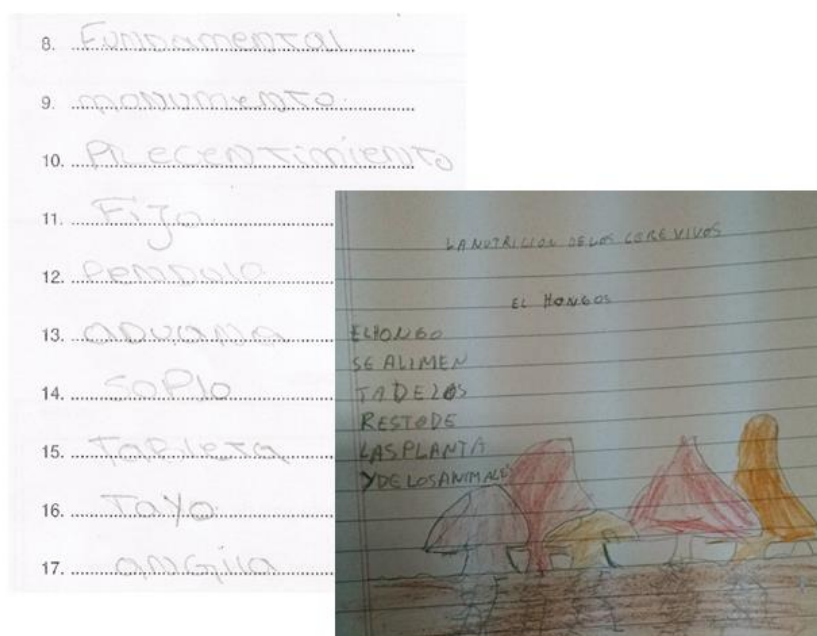 8. FUNDAMENTAL
9. MONUMENTO
10. PRECENTIMIENTO
11. FIJO
12. PENDULO
13. ADUANA
14. SOPLO
15. TARJETA
16. TAYO
17. ANGILA
LA NUTRICION DE LOS CERE VIVOS
EL HONGOS
EL HONGO
SE ALIMEN
TA DE LOS
RESTO DE
LAS PLANTA
Y DE LOS ANIMALES